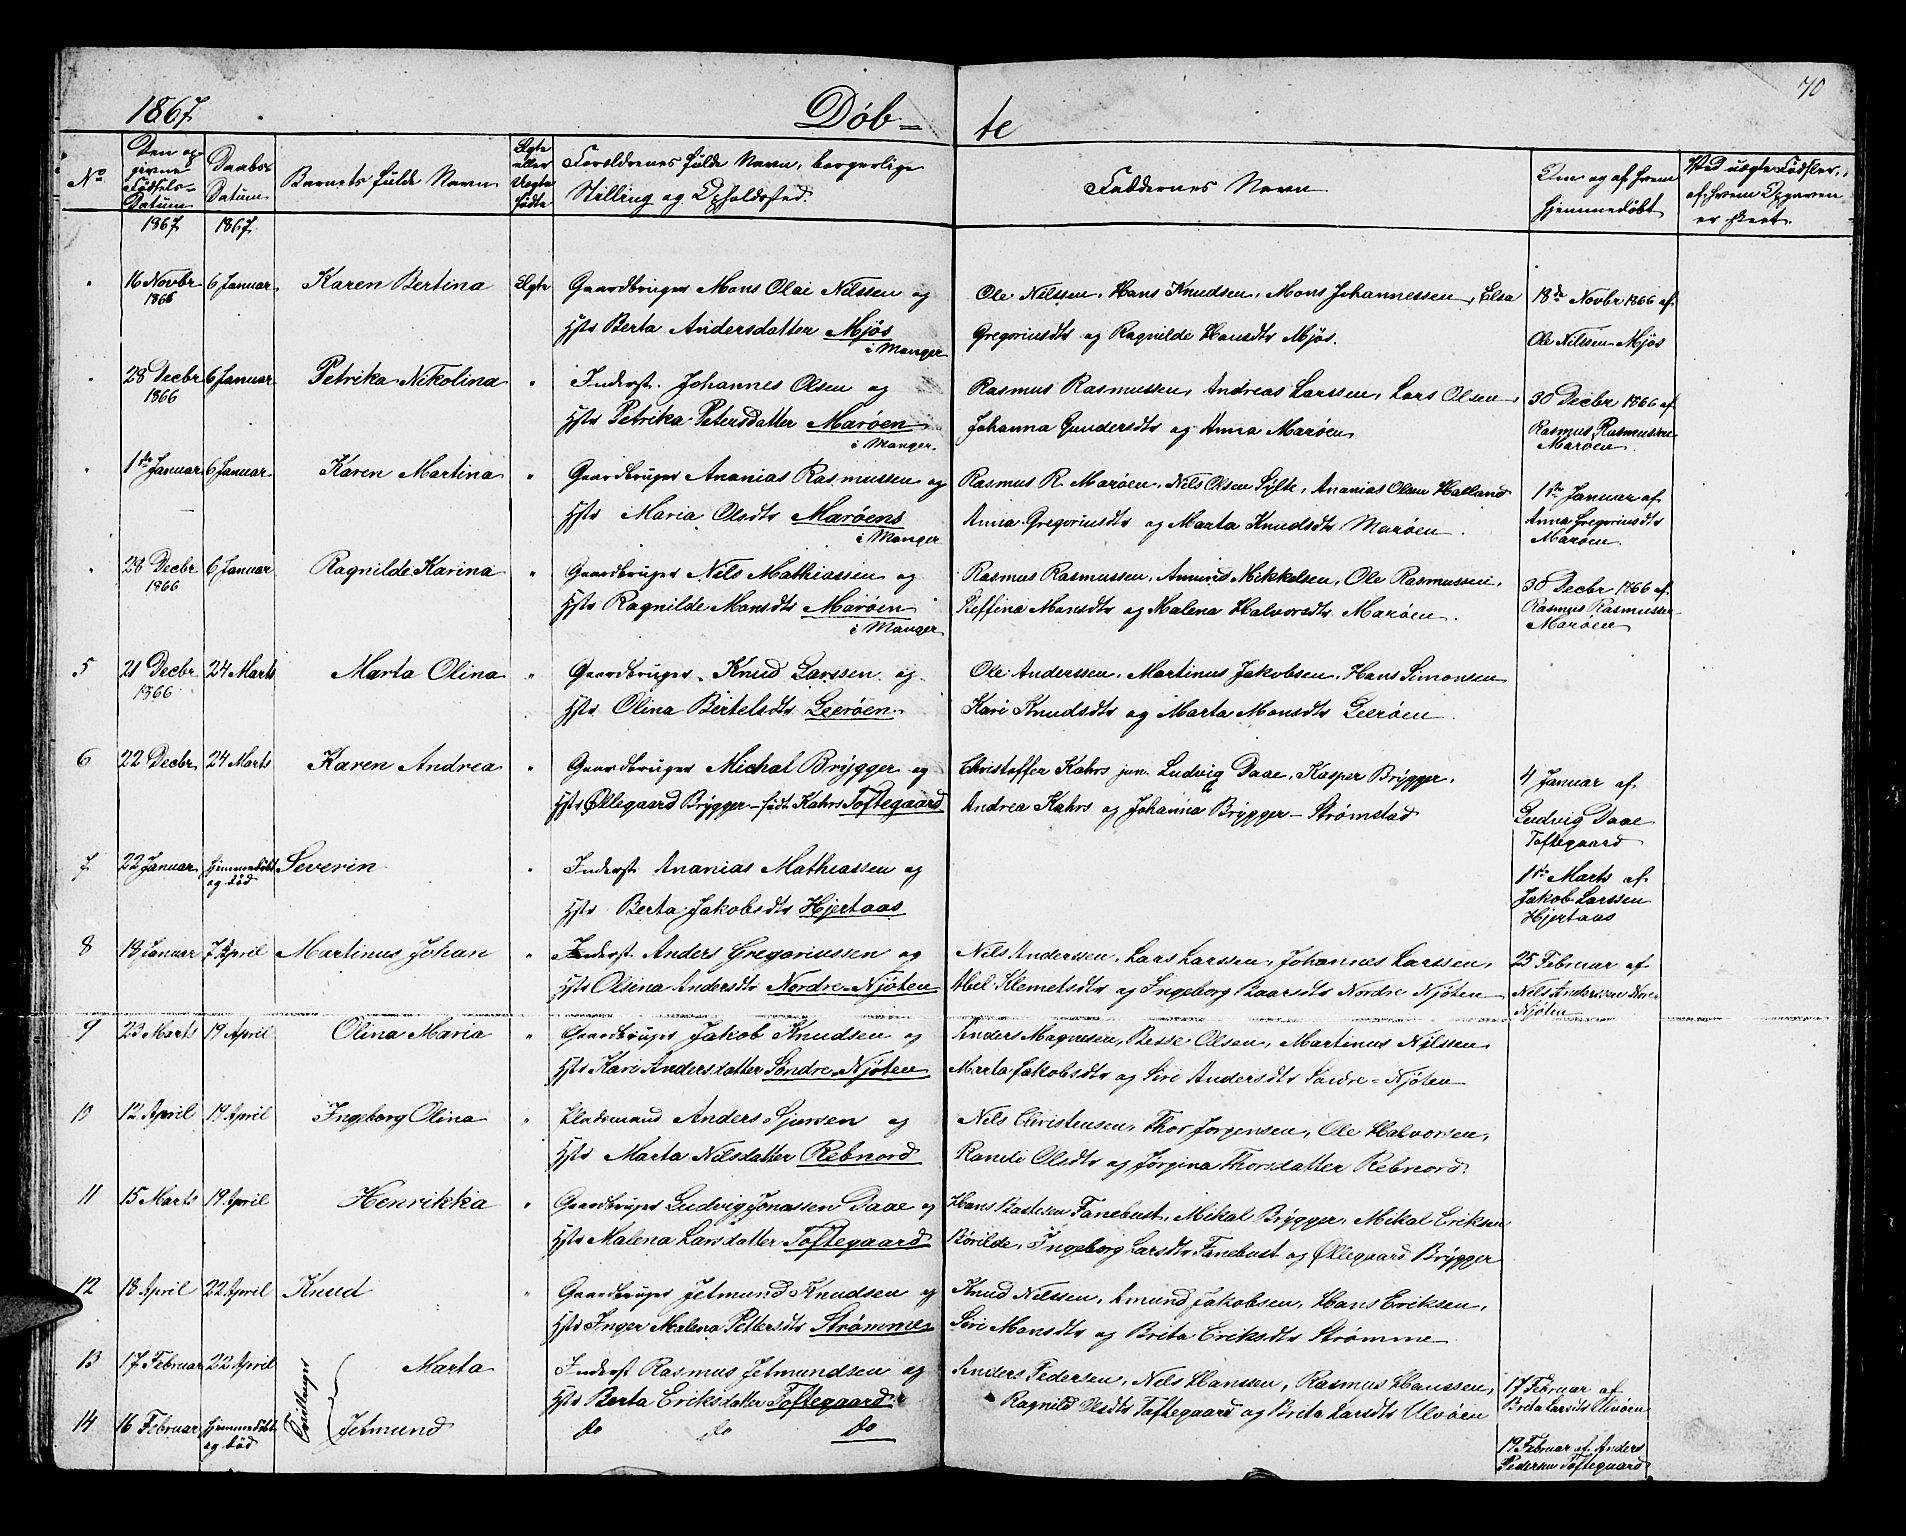 1867.
Døb-
te
70
No
Den op-
givne
Fødsels-
Datum
Daabs-
Datum
Barnets fulde Navn
Ægte
eller
Uægte
fødte
Forældrenes fulde Navn, borgerlige
Stilling og Opholdssted.
Faddernes Navn
Om og af hvem
hjemmedøbt
Ved uægte Fødsler,
af hvem Opgaven
er skeet.
1867. 1867.
" 16 Novbr 6 Januar Karen Bertina Ægte Gaardbruger Mons Olai Nilssen og Ole Nilssen, Hans Knudsen, Mons Johannessen, Elsa 18de Novbr 1866 af
1866 Hstr Berta Andersdatter Mjøs Gregoriusdtr og Ragnilde Hansdtr Mjøs. Ole Nilssen Mjøs
i Manger
" 28 Decbr 6 Januar Petrika Nikolina " Inderst. Johannes Olsen og Rasmus Rasmussen, Andreas Larssen, Lars Olsen, 30 Decbr 1866 af
1866 Hstr Petrika Petersdatter Marøen Johanna Gundersdtr og Anna Marøen Rasmus Rasmussen
i Manger. Marøen.
" 1ste Januar 6 Januar Karen Martina " Gaardbruger Ananias Rasmussen og Rasmus R. Marøen, Nils Olsen Sylte, Ananias Olsen Halland 1ste Januar af
Hstr Maria Olsdtr Marøens Anna Gregoriusdtr og Marta Knudsdtr Marøen. Anna Gregoriusdtr
i Manger Marøen.
" 28 Decbr 6 Januar Ragnilde Karina " Gaardbruger Nils Mathiassen og Rasmus Rasmussen, Amund Mikkelsen, Ole Rasmussen, 30 Decbr 1866 af
1866 Hstr Ragnilde Monsdtr Marøen Steffina Monsdtr og Malena Halvorsdtr Marøen. Rasmus Rasmussen
i Manger Marøen
5 21 Decbr 24 Marts Marta Olina " Gaardbruger Knud Larssen og Ole Anderssen, Martinus Jakobsen, Hans Simonsen
1866 Hstr Olina Bertelsdtr Leerøen Kari Knudsdtr og Marta Monsdtr Leerøen.
6 22 Decbr 24 Marts Karen Andrea " Gaardbruger Michal Brygger og Christoffer Kahrs jun. Ludvig Daae, Kasper Brygger, 4 Januar af
Hstr Øllegaard Brygger-født Kahrs Toftegaard Andrea Kahrs og Johanna Brygger-Strømstad Ludvig Daae
Toftegaard
7 22 Januar Hjemmedøbt Severin " Inderst. Ananias Mathiassen og 1ste Marts af
og død Hstr Berta Jakobsdtr Hjertaas Jakob Larssen
Hjertaas
8 18 Januar 7 April Martinus Johan " Inderst. Anders Gregoriussen og Nils Anderssen, Lars Larssen, Johannes Larssen, 25 Februar af
Hstr Olsina Andersdtr Nordre Njøten Abel Klemetsdtr og Ingeborg Baarsdtr Nordre Njøten Nils Anderssen
Njøten
9 23 Marts 19 April Olina Maria " Gaardbruger Jakob Knudsen og Anders Magnesen, Besse Olsen, Martinus Nilssen
Hstr Kari Andersdatter Søndre Njøten Marta Jakobsdtr og Siri Andersdtr Søndre=Njøten
10 12 April 19 April Ingeborg Olina " Pladsmand Anders Sjursen og Nils Christensen, Thor Jørgensen, Ole Halvorsen,
Hstr Marta Nilsdatter Rebnord Randi Olsdtr og Jørgina Thorsdatter Rebnord.
11 15 Marts 19 April Henrikka " Gaardbruger Ludvig Jonassen Daae og Hans Fanebust, Mikal Brygger, Mikal Eriksen
Hstr Malena Larsdatter Toftegaard Rørilde, Ingeborg Larsdtr Fanebust og Øllegaard Brygger
12 18 April 22 April Knud " Gaardbruger Jetmund Knudsen og Knud Nilssen, Amund Jakobsen, Hans Eriksen,
Hstr Inger Malena Pettersdtr Strømme Siri Monsdtr og Brita Eriksdtr Strømme
13 17 Februar 22 April Tvillinger Marta Inderst Rasmus Jetmundsen og Anders Pedersen, Nils Hanssen, Rasmus Hanssen, 17 Februar af
Hstr Berta Eriksdatter Toftegaard Ragnild Olsdtr Toftegaard og Brita Larsdtr Ulvøen Brita Larsdtr Ulvøen
14 16 Februar Hjemmedøbt Jetmund do do do 19 Februar af Anders
og død Pedersen Toftegaard